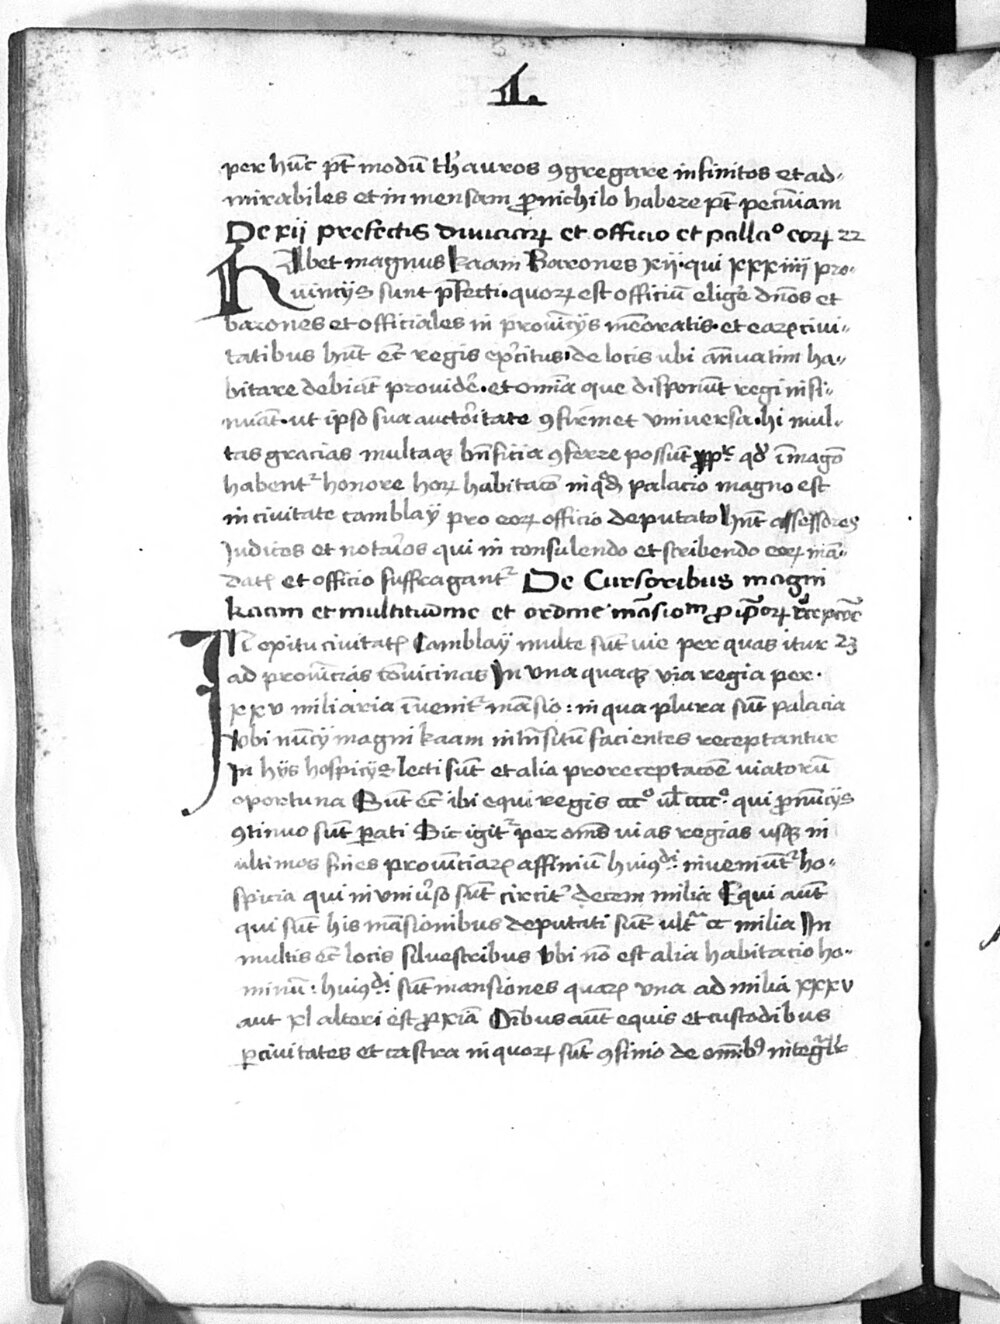 1.
per hūc pt̄ modū thˀauros ꝯgregare infinitos et ad-
mirabiles et in mensam ꝓ nichilo habere pt̄ pecūiam
De xij prefectis diuiciaꝝ et officio et pallaº eoꝝ 22
HAbet magnus kaam Barones xij · qui xxxiiij pro-
uincijs sunt pˀfecti · quoꝝ est officiū eligˀe dn̄os et
barones et officiales in prouīcijs mēoratis · et eaꝝ ciui-
tatibus hn̄t ec̄ regis exˀcitus · de locis ubi ān̄uatim ha-
bitare debiāt prouidēˀ · et om̄ia que disponūt regi insi-
nuāt · ut ipso sua auctoˀitate ꝯfirmet vniuersa · hi mul-
tas gracias multaqꝫ bn̄ficia ꝯferre possūt qđ ī magō
habentˀ honore hoꝝ habitacō in qđ palacio magno est
in ciuitate camblaÿ pro eoꝝ officio deputato hn̄t assessores
Judices et notaˀios qui in consulendo et scribendo eoꝝ mā-
datꝭ et officio suffragantˀ De Cursoribus magni
kaam et multitudine et ordine māsionꝝ ꝓ ip̄oꝝ
IN exitu ciuitatꝭ Camblaÿ multe sūt vie per quas itur 23
ad prouīcias conuicinas In vna quaqꝫ via regia per ·
xxv miliaria īuenitˀ māsio : in qua plura sūt palacia
Vbi nūcij magni kaam in hn̄ sitūs facientes receptantur
In hijs hospicijs lecti sūt et alia pro receptacōe viatorū
oportuna Sūt ec̄ ibi equi regis ccº ul̄ ccccº · qui ꝓ nūcijs
ꝯtinuo sūt ꝑati Sic igitˀ per om̄s vias regias usqꝫ in
ultimos fines prouīciaꝝ affiniū huiꝰdi inueniūtˀ ho-
spicia qui in vniuˀso sūt circitˀ decem milia Equi aūt
qui sūt his māsionibus deputati sūt ultˀ cc milia In
multis ec̄ locis siluestribus Vbi nō est alia habitacio ho-
minū : huiꝰdi sūt mansiones quaꝝ vna ad milia xxxv
aut xl alteri est ꝓxīa Oībus aūt equis et custodibus
ꝑ ciuitates et castra in quoꝝ sūt ꝯfinio de om̄ibꝰ